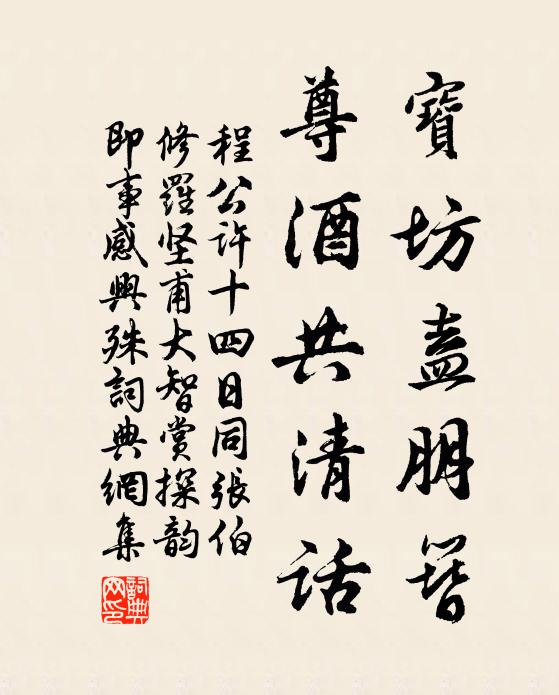 寶坊盍朋簪
尊酒共清話
程公許十四日同張伯
修羅坚甫大智赏探韵
即事感興殊詞典網集
詞典網印